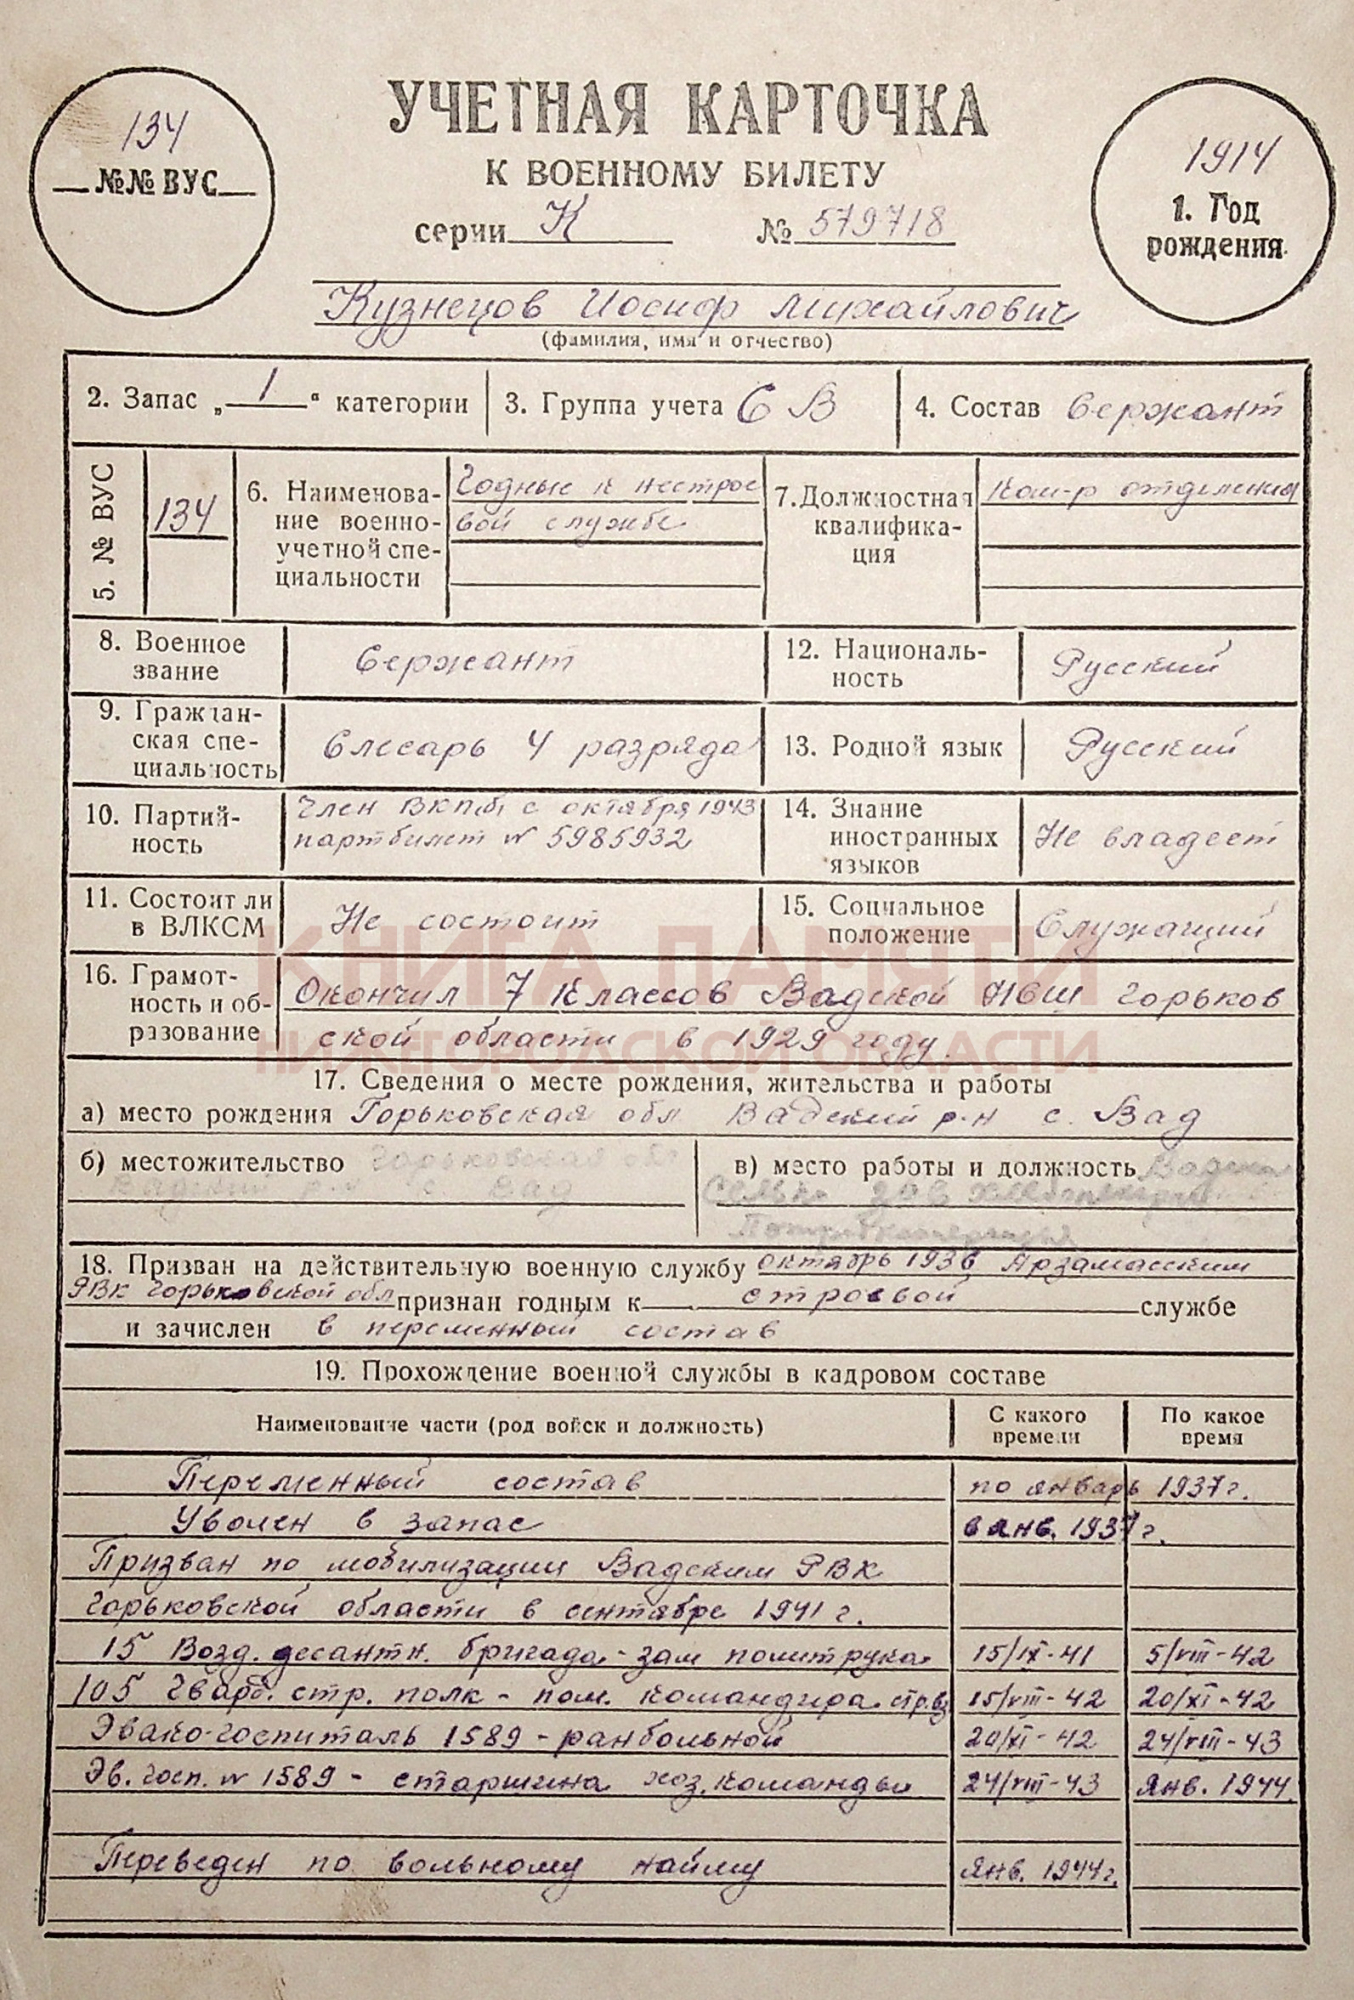 134
№№ ВУС
УЧЕТНАЯ КАРТОЧКА
К ВОЕННОМУ БИЛЕТУ
серии К № 579718
1914
1. Год
рождения
Кузнецов Иосиф Михайлович
(фамилия, имя и отчество)
2. Запас „1“ категории
3. Группа учета СВ
4. Состав Сержант
5. № ВУС
134
6. Наименова-
ние военно-
учетной спе-
циальности
Годные к нестрое
вой службе
7. Должностная
квалифика-
ция
Ком-р отделения
8. Военное
звание
Сержант
12. Националь-
ность
Русский
9. Граждан-
ская спе-
циальность
Слесарь 4 разряда
13. Родной язык
Русский
10. Партий-
ность
Член ВКП(б) с октября 1943
партбилет № 5985932
14. Знание
иностранных
языков
Не владеет
11. Состоит ли
в ВЛКСМ
Не состоит
15. Социальное
положение
Служащий
КНИГА ПАМЯТИ
НИЖЕГОРОДСКОЙ ОБЛАСТИ
16. Грамот-
ность и об-
разование
Окончил 7 классов Вадской НСШ Горьков
ской области в 1929 году.
17. Сведения о месте рождения, жительства и работы
а) место рождения Горьковская обл Вадский р-н с. Вад
б) местожительство Горьковская обл
Вадский р-н с. Вад
в) место работы и должность
зав хлебопекарни
18. Призван на действительную военную службу октябрь 1936 Арзамасским
РВК Горьковской обл признан годным к строевой службе
и зачислен в переменный состав
19. Прохождение военной службы в кадровом составе
Наименование части (род войск и должность)
С какого
времени
По какое
время
Переменный состав по январь 1937 г.
Уволен в запас в янв. 1937 г.
Призван по мобилизации Вадским РВК
Горьковской области в сентябре 1941 г.
15 Возд. десантн. бригада - зам политрука 15/IX-41 5/VIII-42
105 Гвард. стр. полк - пом. командира стр. вз 15/VIII-42 20/XI-42
Эвако-госпиталь 1589 - ранбольной 20/XI-42 24/VIII-43
Эв. госп. № 1589 - старшина хоз. команды 24/VIII-43 Янв. 1944.
Переведен по вольному найму Янв. 1944 г.